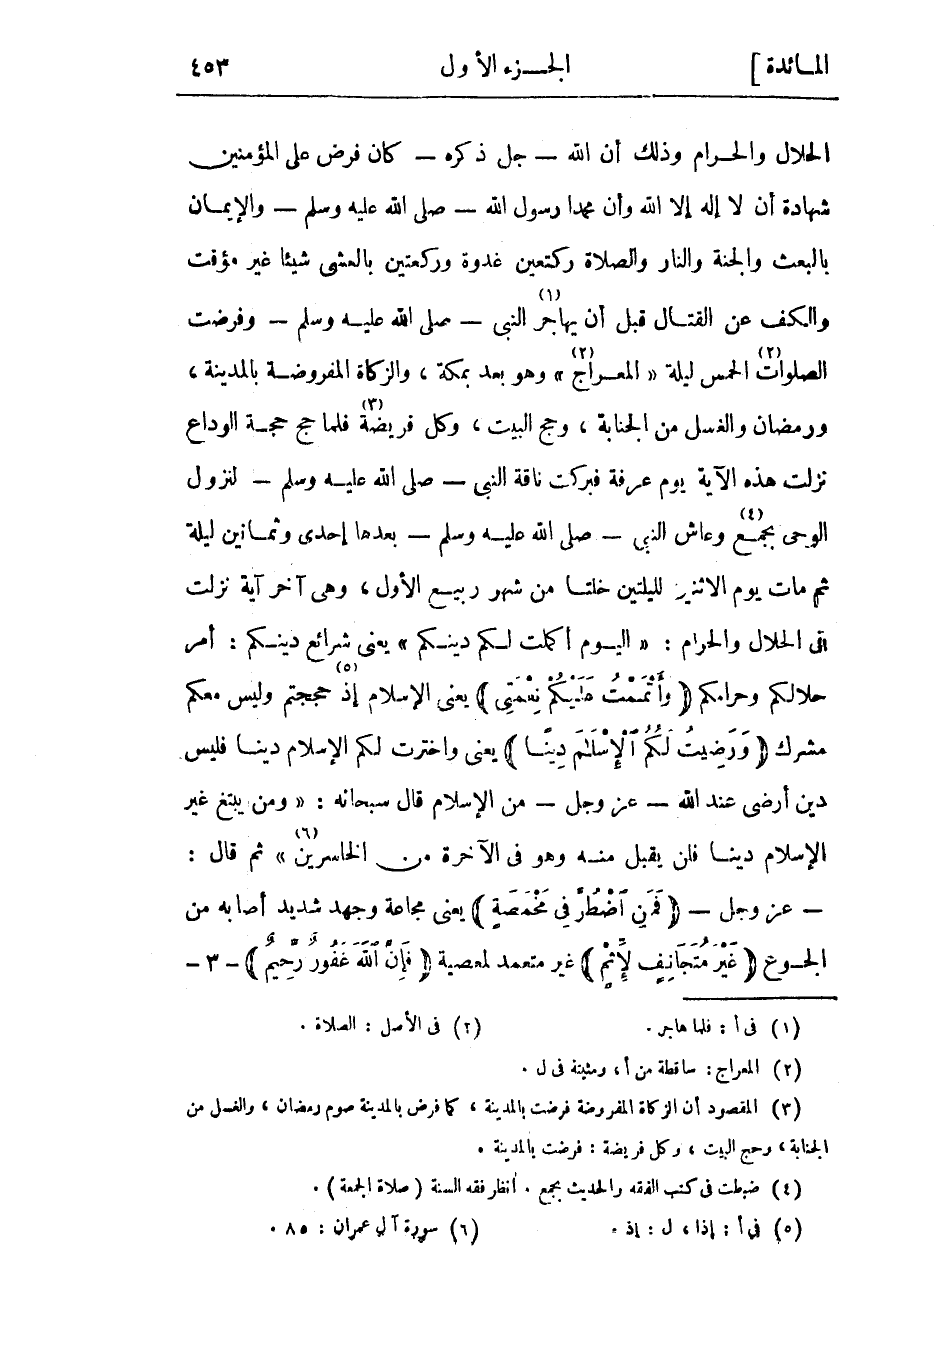 المائدة ]
الجزء الأول
٤٥٣
الحلال والحرام وذلك أن الله — جل ذكره — كان فرض على المؤمنين
شهادة أن لا إله إلا الله وأن محمدا رسول الله — صلى الله عليه وسلم — والإيمان
بالبعث والجنة والنار والصلاة ركتعين غدوة وركعتين بالعشى شيئا غير مؤقت
والكف عن القتال قبل أن يهاجر (١) النبى — صلى الله عليه وسلم — وفرضت
الصلوات (٢) الخمس ليلة « المعراج (٢) » وهو بعد بمكة ، والزكاة المفروضة بالمدينة ،
ورمضان والغسل من الجنابة ، وحج البيت ، وكل فريضة (٣) فلما حج حجة الوداع
نزلت هذه الآية يوم عرفة فبركت ناقة النبى — صلى الله عليه وسلم — لنزول
الوحى بجمع (٤) وعاش النبى — صلى الله عليه وسلم — بعدها إحدى وثمانين ليلة
ثم مات يوم الاثنين لليلتين خلتا من شهر ربيع الأول ، وهى آخر آية نزلت
فى الحلال والحرام : « اليوم أكملت لكم دينكم » يعنى شرائع دينكم : أمر
حلالكم وحرامكم ﴿ وَأَتْمَمْتُ عَلَيْكُمْ نِعْمَتِى ﴾ يعنى الإسلام إذ (٥) حججتم وليس معكم
مشرك ﴿ وَرَضِيتُ لَكُمُ ٱلْإِسْلَٰمَ دِينًا ﴾ يعنى واخترت لكم الإسلام دينا فليس
دين أرضى عند الله — عز وجل — من الإسلام قال سبحانه : « ومن يبتغ غير
الإسلام دينا فلن يقبل منه وهو فى الآخرة من الخاسرين (٦) » ثم قال :
— عز وجل — ﴿ فَمَنِ ٱضْطُرَّ فِى مَخْمَصَةٍ ﴾ يعنى مجاعة وجهد شديد أصابه من
الجوع ﴿ غَيْرَ مُتَجَانِفٍ لِّإِثْمٍ ﴾ غير متعمد لمعصية ﴿ فَإِنَّ ٱللَّهَ غَفُورٌ رَّحِيمٌ ﴾ - ٣ -
(١) فى أ : فلما هاجر . (٢) فى الأصل : الصلاة .
(٢) المعراج : ساقطة من أ ، ومثبتة فى ل .
(٣) المقصود أن الزكاة المفروضة فرضت بالمدينة ، كما فرض بالمدينة صوم رمضان ، والغسل من
الجنابة ، وحج البيت ، وكل فريضة : فرضت بالمدينة .
(٤) ضبطت فى كتب الفقه والحديث بجمع . أنظر فقه السنة ( صلاة الجمعة ) .
(٥) فى أ : إذا ، ل : إذ . (٦) سورة آل عمران : ٨٥ .